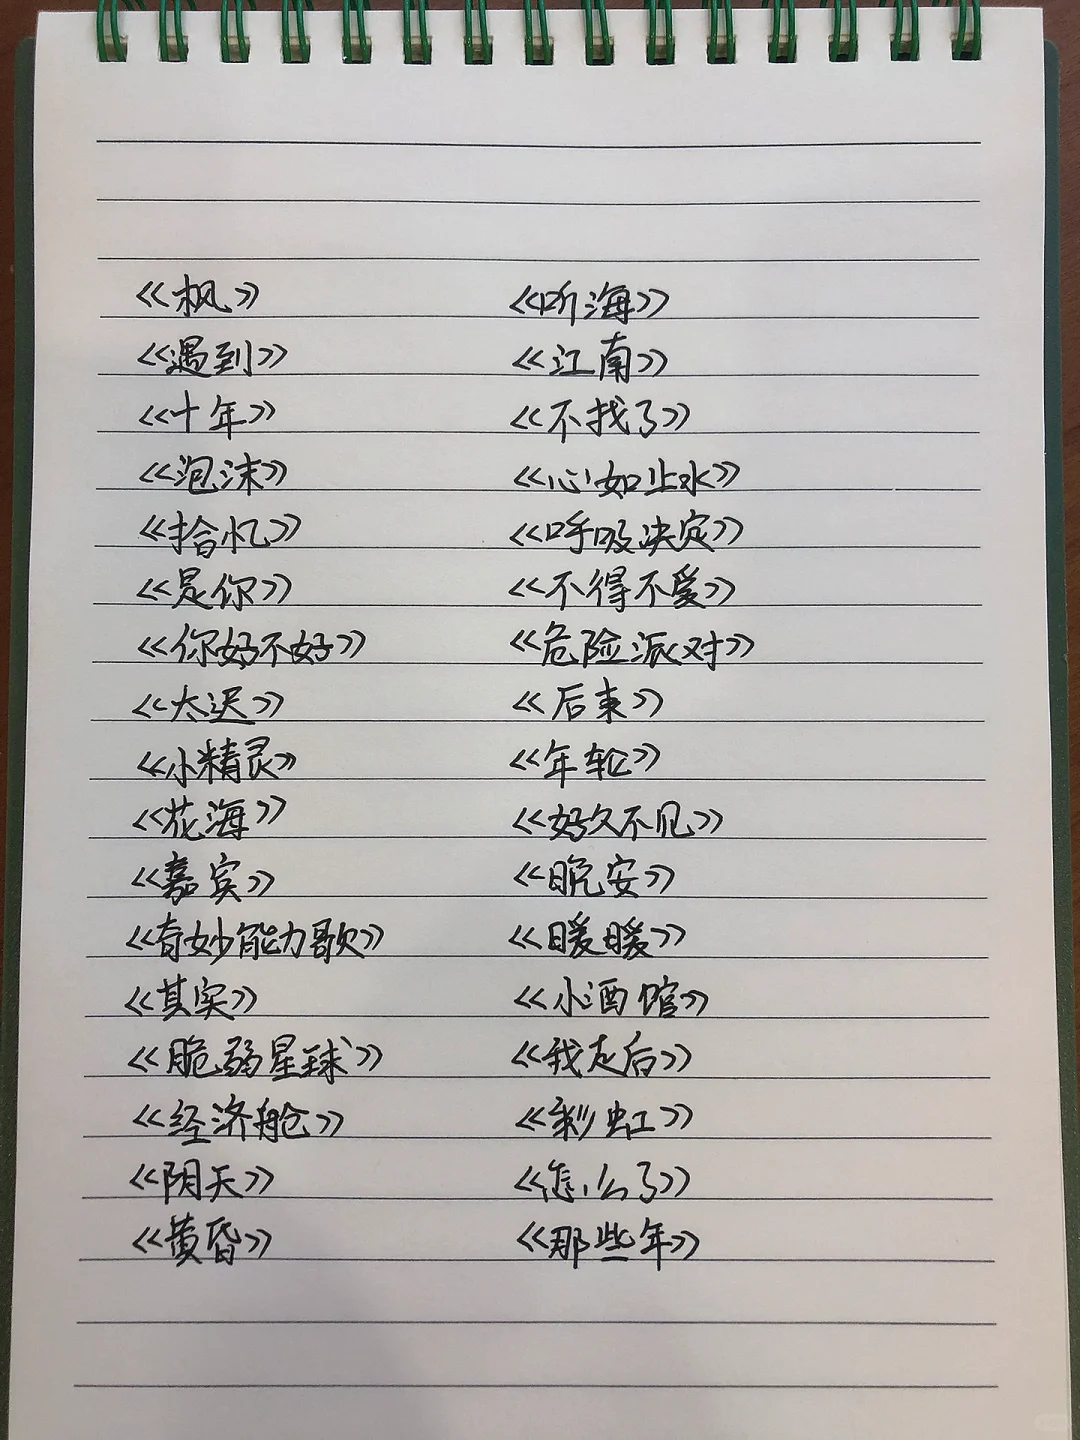 《枫》 《听海》
《遇到》 《江南》
《十年》 《不找了》
《泡沫》 《心如止水》
《拾忆》 《呼吸决定》
《是你》 《不得不爱》
《你好不好》 《危险派对》
《太迟》 《后来》
《小精灵》 《年轮》
《花海》 《好久不见》
《嘉宾》 《晚安》
《奇妙能力歌》 《暖暖》
《其实》 《小酒馆》
《脆弱星球》 《我走后》
《经济舱》 《彩虹》
《阴天》 《怎么了》
《黄昏》 《那些年》